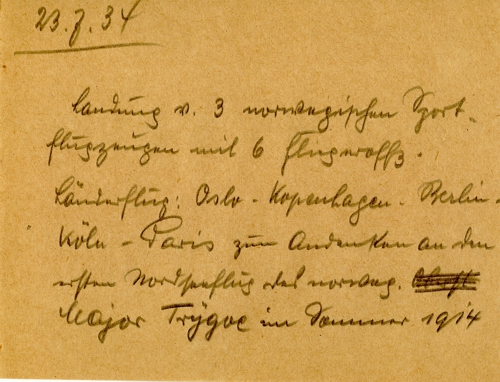 23.7.34
Landung v. 3 norwegischen Sport-
flugzeugen mit 6 Fliegeroffz.
Länderflug: Oslo - Kopenhagen - Berlin -
Köln - Paris zum Andenken an den
ersten Nordseeflug des norweg.
Major Trygve im Sommer 1914